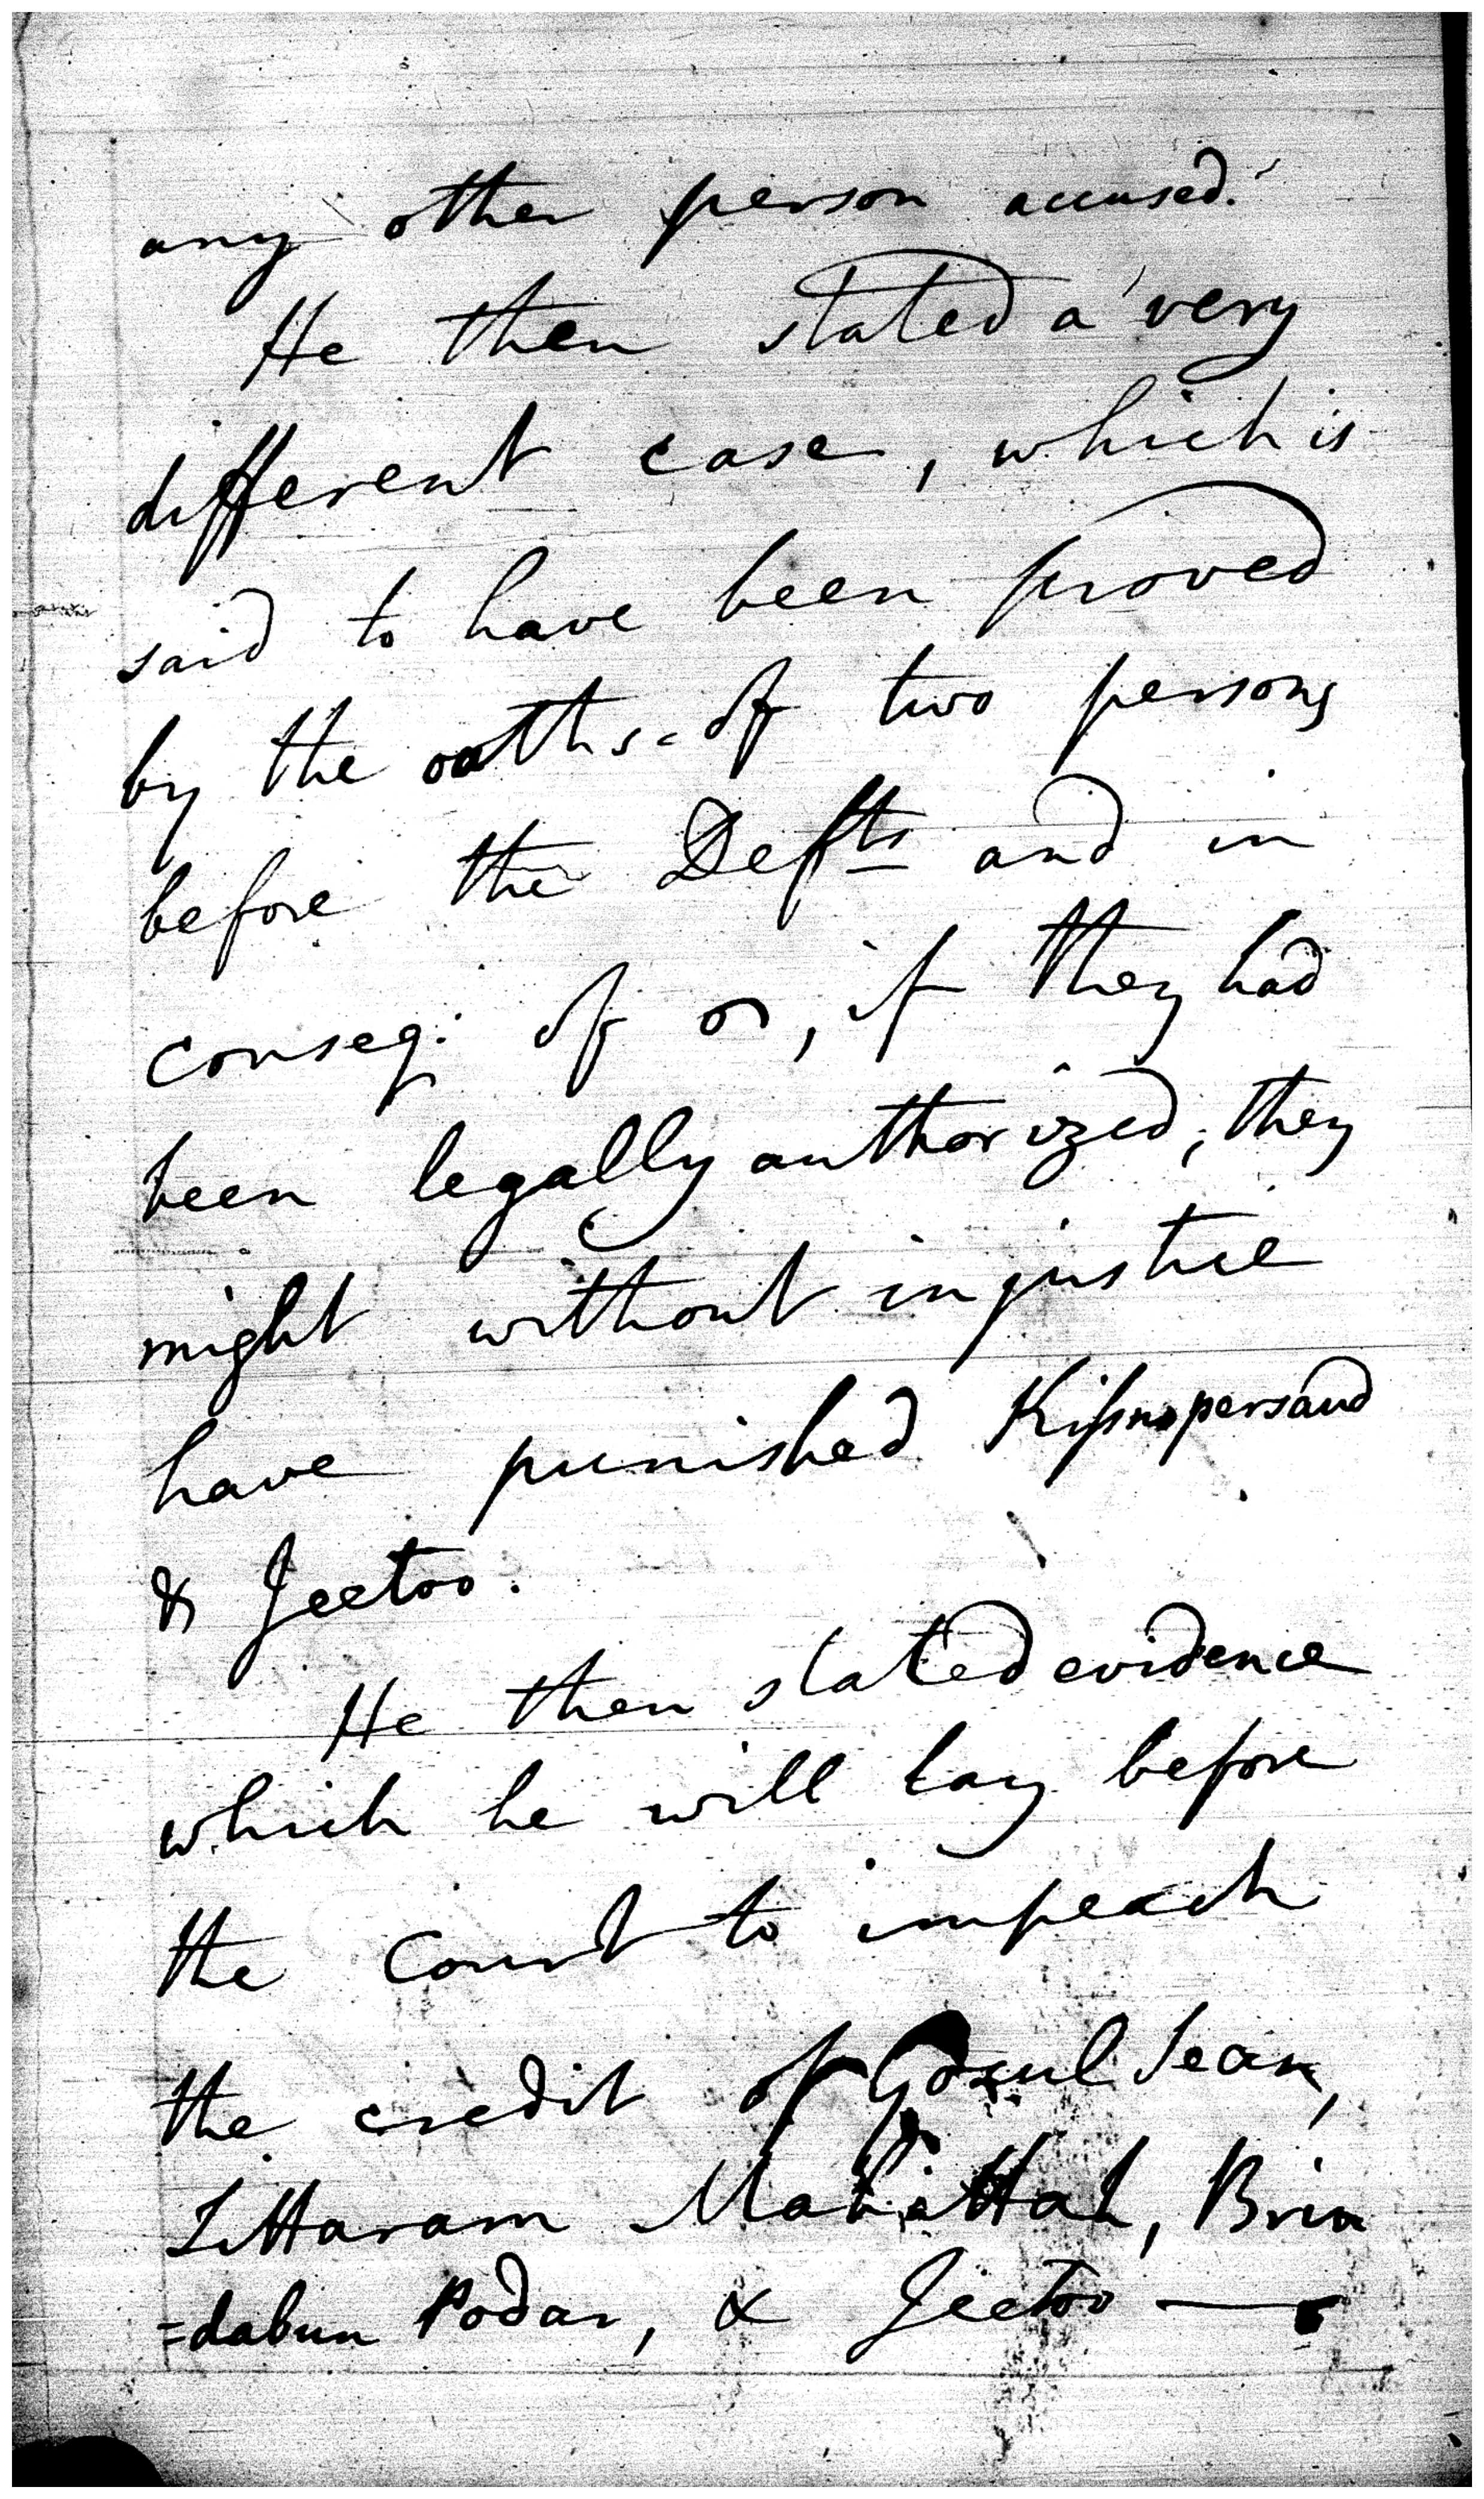 any other person accused.
He then stated a very
different case, which is
said to have been proved
by the oaths of two persons
before the Defts and in
conseq: of , if they had
been legally authorized, they
might without injustice
have punished Kissnopersaud
& Jeetoo.
He then stated evidence
which he will lay before
the court to impeach
the credit of
Brin
=dabun Podar, & Jeetoo —